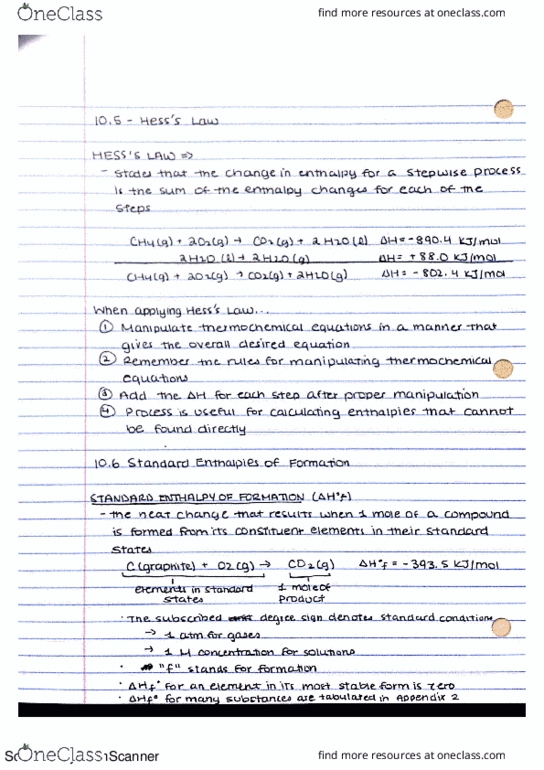 OneClass find more resources at oneclass.com
10.5 - Hess's Law
HESS'S LAW =>
- States that the change in enthalpy for a stepwise process
is the sum of the enthalpy changes for each of the
steps
CH4(g) + 2O2(g) → CO2(g) + 2H2O(l) ΔH = -890.4 KJ/mol
2H2O(l) → 2H2O(g) ΔH = +88.0 KJ/mol
CH4(g) + 2O2(g) → CO2(g) + 2H2O(g) ΔH = -802.4 KJ/mol
When applying Hess's Law...
① Manipulate thermochemical equations in a manner that
gives the overall desired equation
② Remember the rules for manipulating thermochemical
equations
③ Add the ΔH for each step after proper manipulation
④ Process is useful for calculating enthalpies that cannot
be found directly
10.6 Standard Enthalpies of Formation
STANDARD ENTHALPY OF FORMATION (ΔH°f)
- the heat change that results when 1 mole of a compound
is formed from its constituent elements in their standard
states
C(graphite) + O2(g) → CO2(g) ΔH°f = -393.5 KJ/mol
elements in standard 1 mole of
states product
· The subscribed degree sign denotes standard conditions
→ 1 atm for gases
→ 1 M concentration for solutions
· "f" stands for formation
· ΔHf° for an element in its most stable form is zero
· ΔHf° for many substances are tabulated in Appendix 2
OneClass Scanner find more resources at oneclass.com